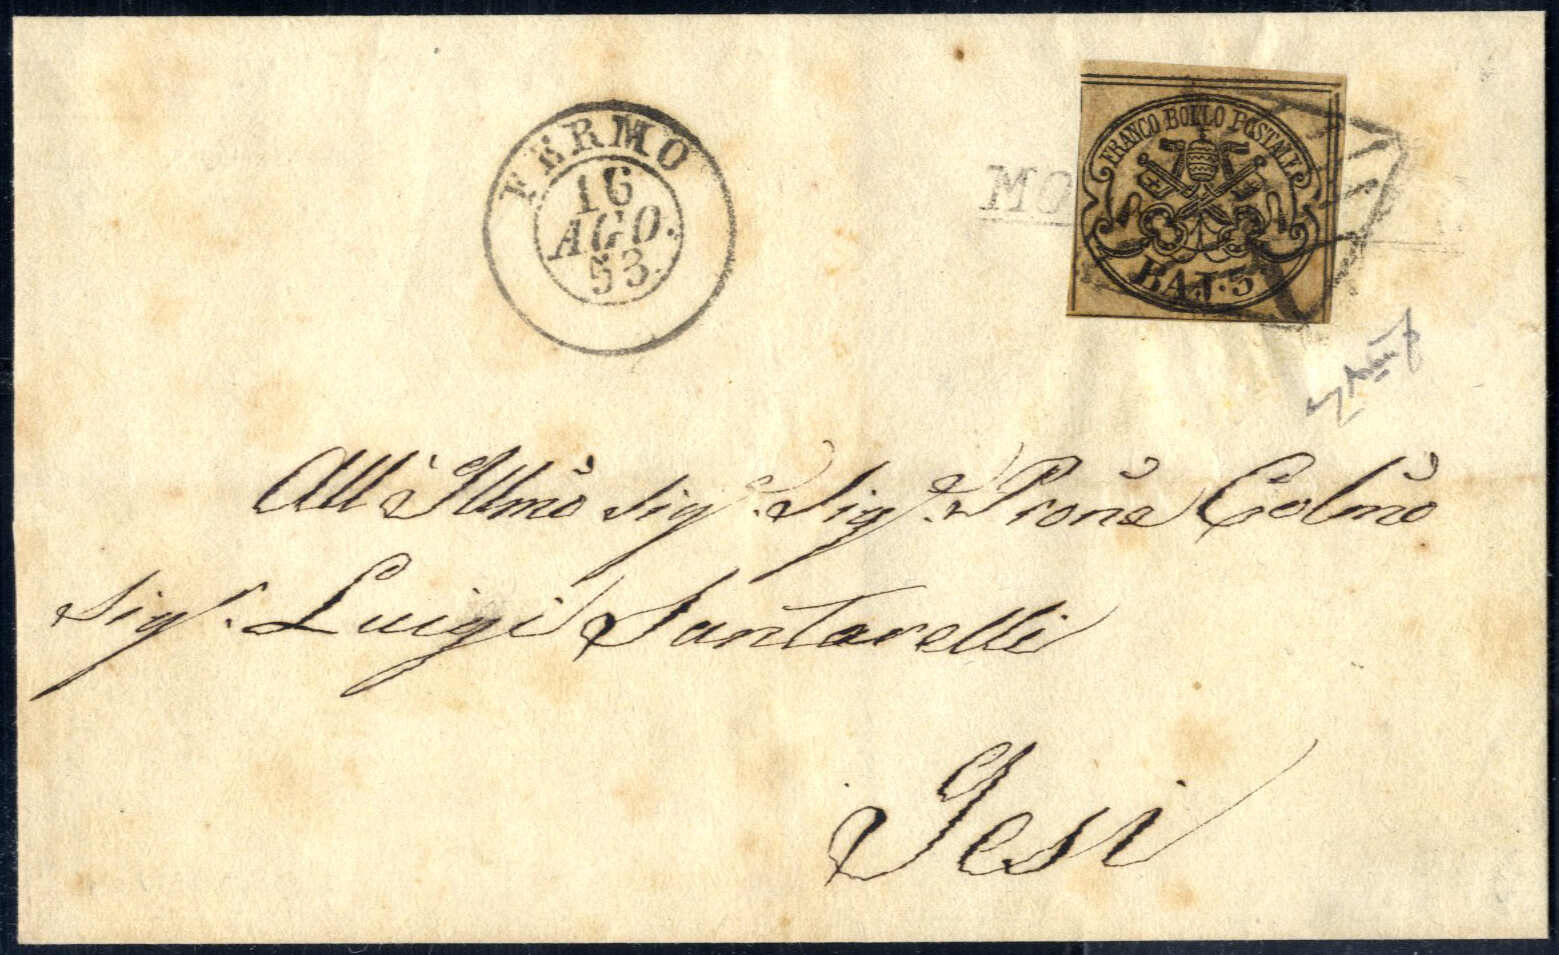 FERMO
16
AGO.
53.
MO
FRANCO BOLLO POSTALE
BAJ. 5
All' Illmõ Sigr. Sigr. Prõne Colmõ
Sigr. Luigi Santarelli
Jesi